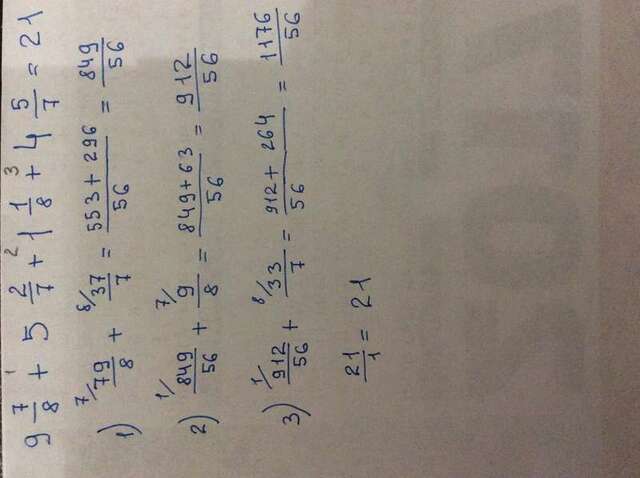 9 7/8 + 5 2/7 + 1 1/8 + 4 5/7 = 21
1 2 3
1) 7/ 79/8 + 8/ 37/7 = 553 + 296/56 = 849/56
2) 1/ 849/56 + 7/ 9/8 = 849 + 63/56 = 912/56
3) 1/ 912/56 + 8/ 33/7 = 912 + 264/56 = 1176/56
21/1 = 21